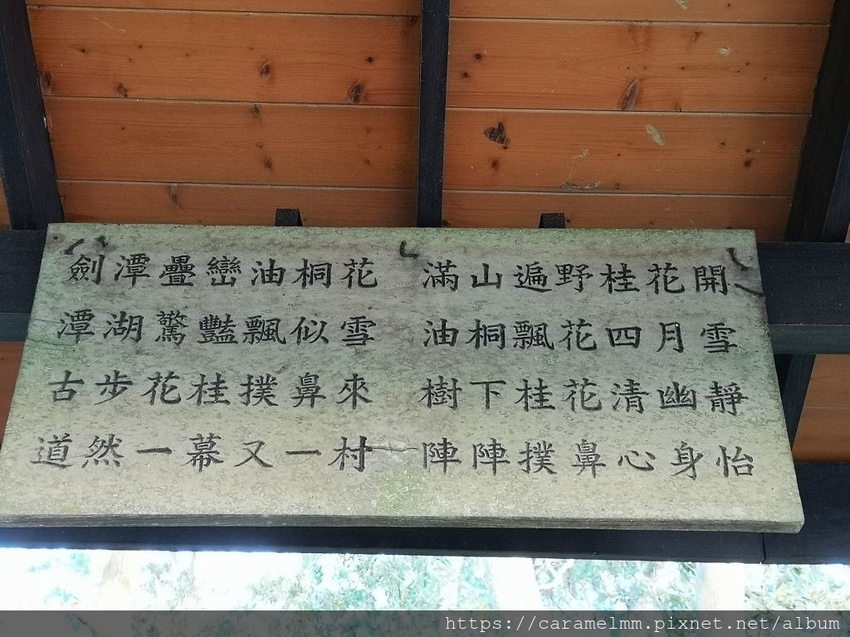 劍潭疊巒油桐花
潭湖驚豔飄似雪
古步花桂撲鼻來
道然一幕又一村
滿山遍野桂花開
油桐飄花四月雪
樹下桂花清幽靜
陣陣撲鼻心身怡
https://caramelmm.pixnet.net/album